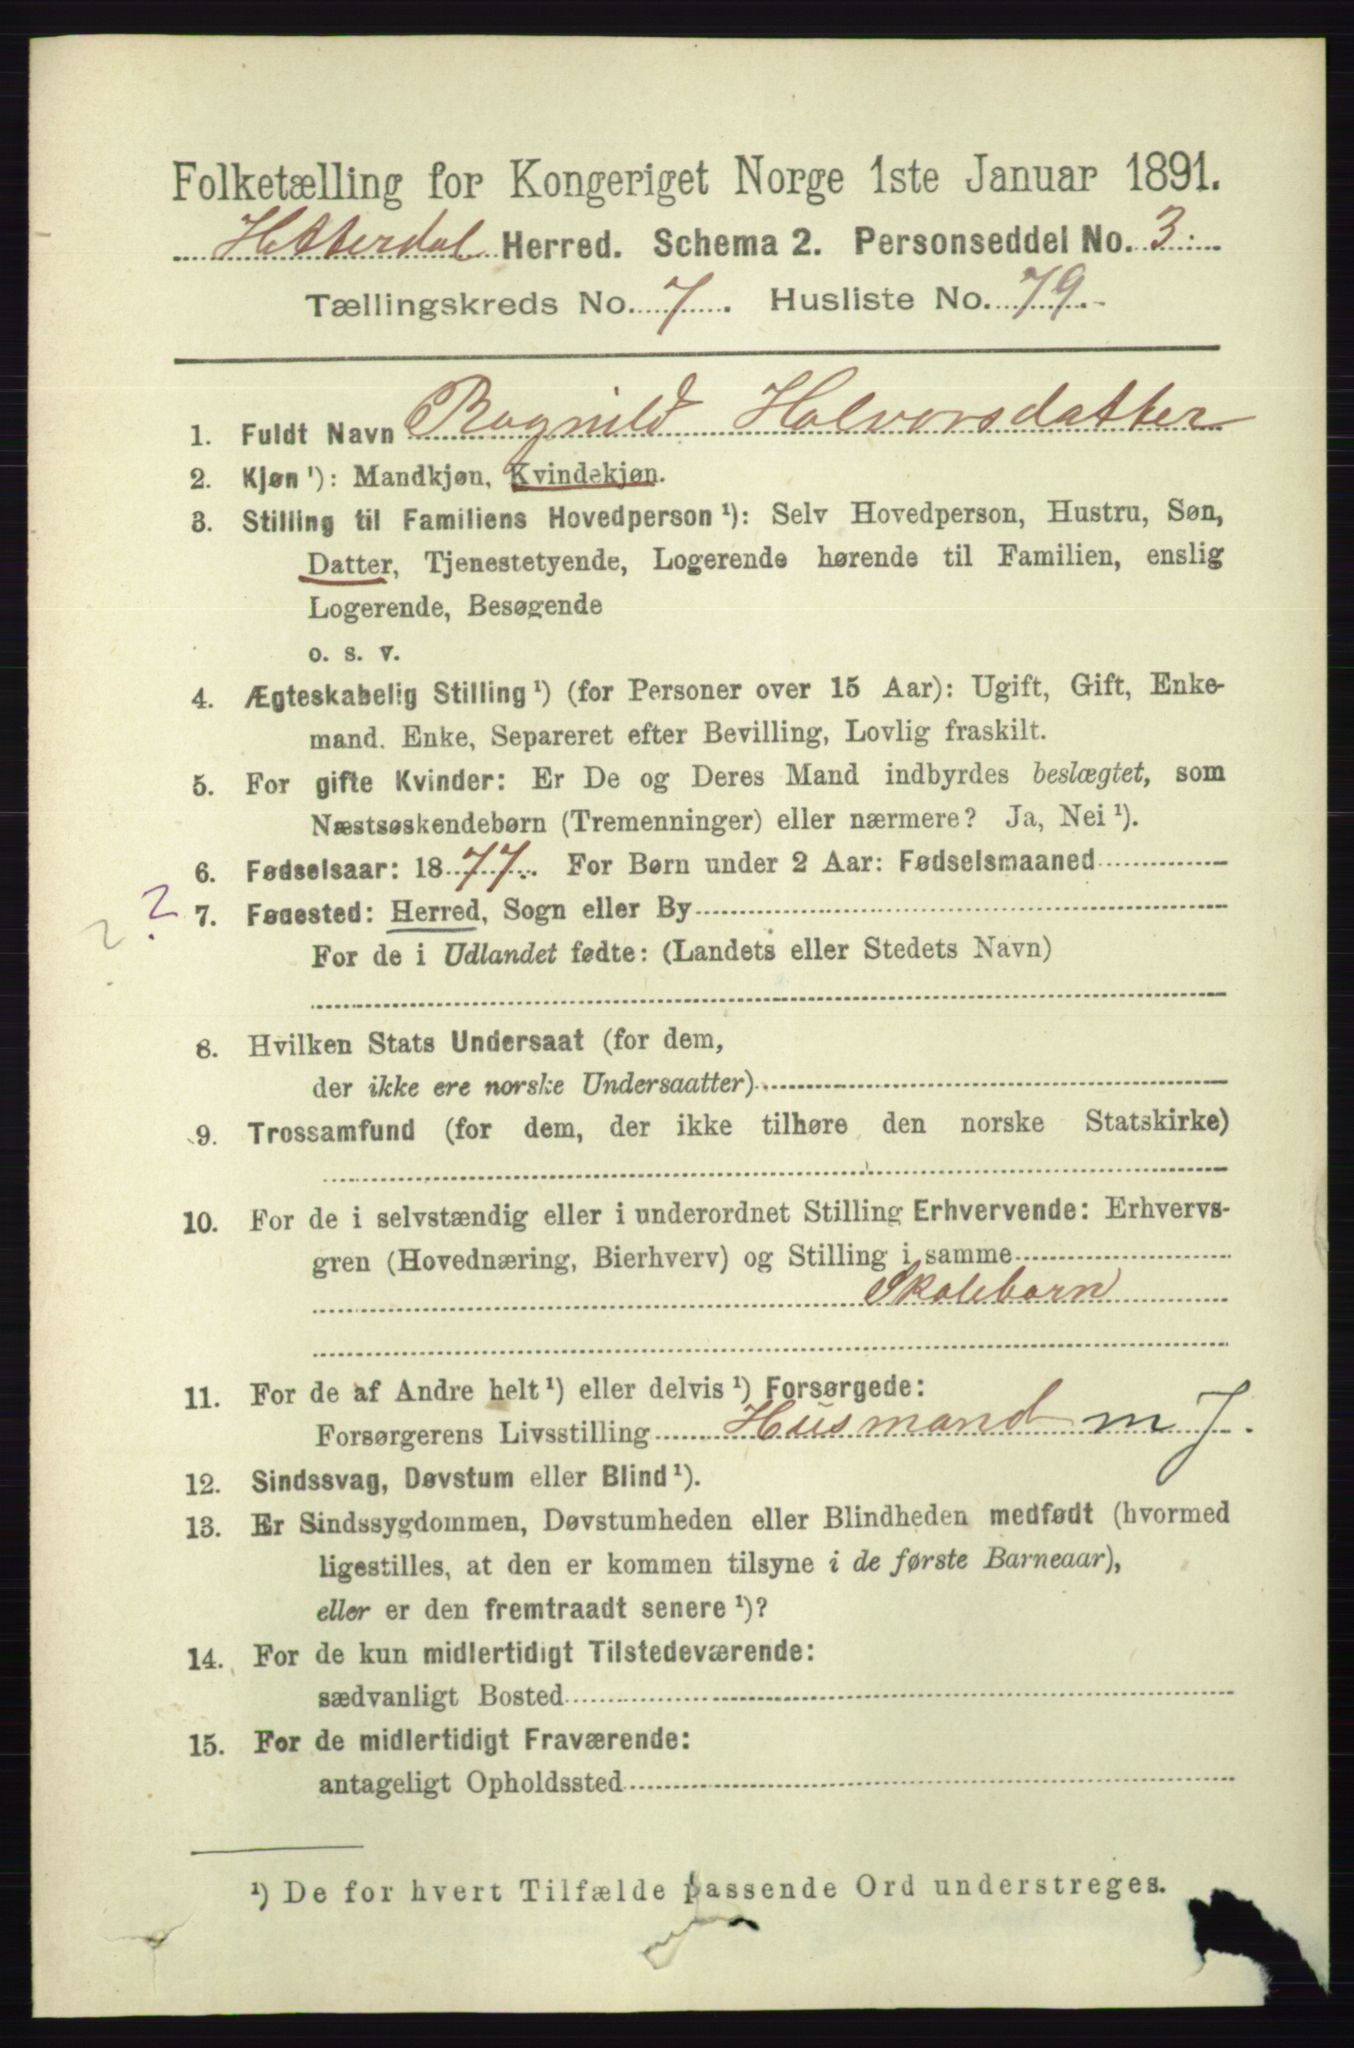 Folketælling for Kongeriget Norge 1ste Januar 1891.
Hitterdal Herred. Schema 2. Personseddel No. 3.
Tællingskreds No. 7. Husliste No. 79.
1. Fuldt Navn Ragnild Halvorsdatter
2. Kjøn ¹): Mandkjøn, Kvindekjøn.
3. Stilling til Familiens Hovedperson ¹): Selv Hovedperson, Hustru, Søn,
Datter, Tjenestetyende, Logerende hørende til Familien, enslig
Logerende, Besøgende
o. s. v.
4. Ægteskabelig Stilling ¹) (for Personer over 15 Aar): Ugift, Gift, Enke-
mand. Enke, Separeret efter Bevilling, Lovlig fraskilt.
5. For gifte Kvinder: Er De og Deres Mand indbyrdes beslægtet, som
Næstsøskendebørn (Tremenninger) eller nærmere? Ja, Nei ¹).
6. Fødselsaar: 1877. For Børn under 2 Aar: Fødselsmaaned
? ? 7. Fødested: Herred, Sogn eller By
For de i Udlandet fødte: (Landets eller Stedets Navn)
8. Hvilken Stats Undersaat (for dem,
der ikke ere norske Undersaatter)
9. Trossamfund (for dem, der ikke tilhøre den norske Statskirke)
10. For de i selvstændig eller i underordnet Stilling Erhvervende: Erhvervs-
gren (Hovednæring, Bierhverv) og Stilling i samme
Skolebarn
11. For de af Andre helt ¹) eller delvis ¹) Forsørgede:
Forsørgerens Livsstilling Husmand m J.
12. Sindssvag, Døvstum eller Blind ¹).
13. Er Sindssygdommen, Døvstumheden eller Blindheden medfødt (hvormed
ligestilles, at den er kommen tilsyne i de første Barneaar),
eller er den fremtraadt senere ¹)?
14. For de kun midlertidigt Tilstedeværende:
sædvanligt Bosted
15. For de midlertidigt Fraværende:
antageligt Opholdssted
¹) De for hvert Tilfælde passende Ord understreges.